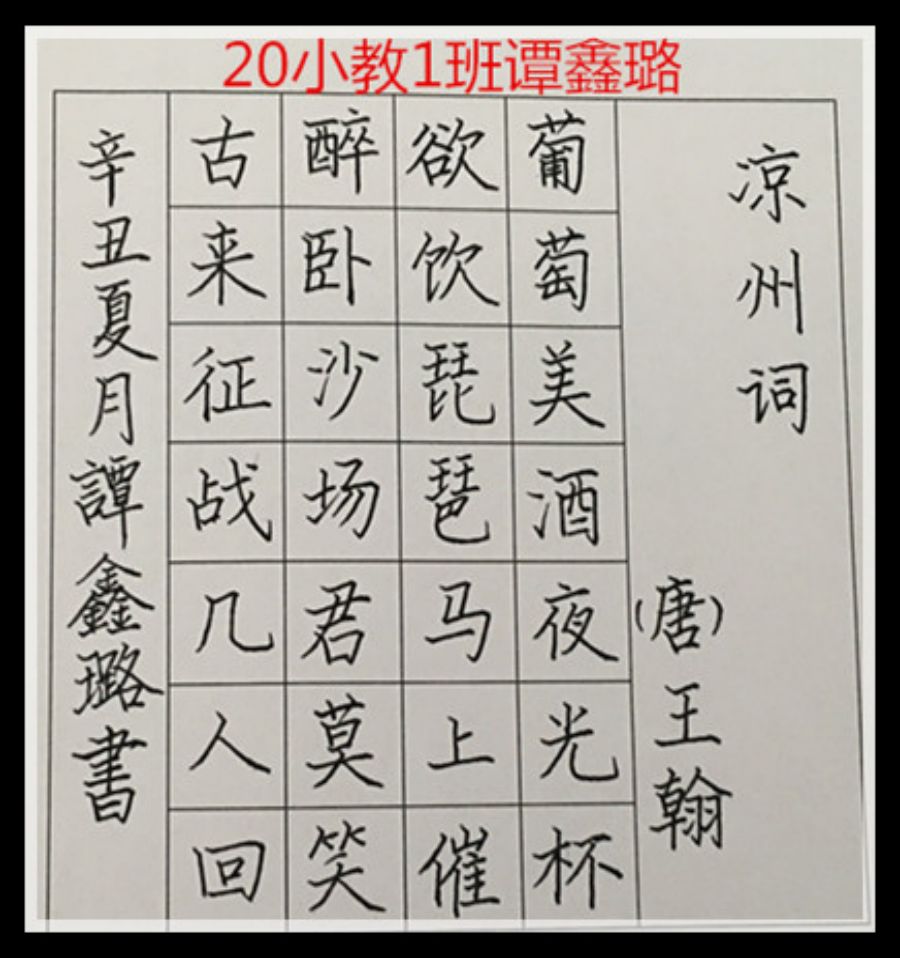 20小教1班谭鑫璐
凉州词
(唐)王翰
葡萄美酒夜光杯
欲饮琵琶马上催
醉卧沙场君莫笑
古来征战几人回
辛丑夏月譚鑫璐書